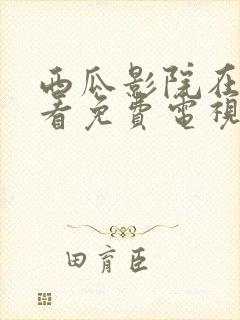 西瓜影院在
看免费電視
田育臣